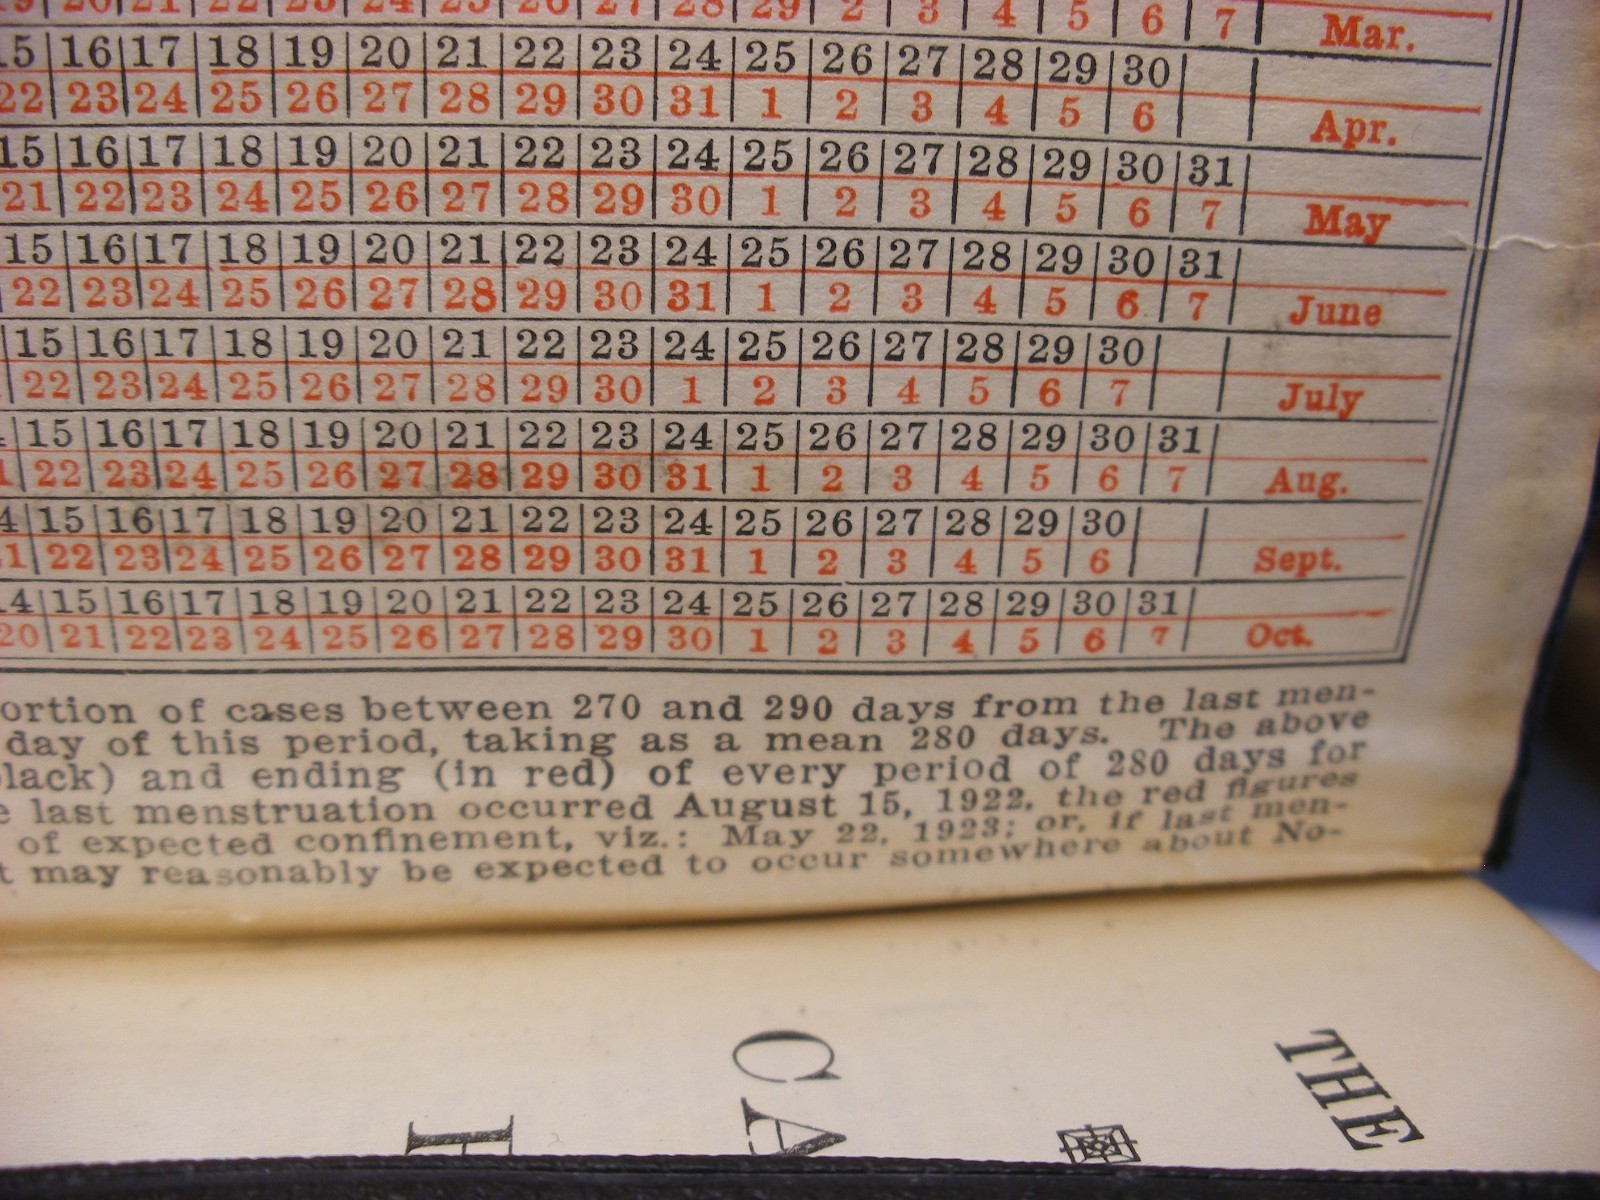 19 20 21 22 23 24 25 26 27 28 29 2 3 4 5 6 7 Mar.
15 16 17 18 19 20 21 22 23 24 25 26 27 28 29 30
22 23 24 25 26 27 28 29 30 31 1 2 3 4 5 6 Apr.
15 16 17 18 19 20 21 22 23 24 25 26 27 28 29 30 31
21 22 23 24 25 26 27 28 29 30 1 2 3 4 5 6 7 May
15 16 17 18 19 20 21 22 23 24 25 26 27 28 29 30 31
22 23 24 25 26 27 28 29 30 31 1 2 3 4 5 6 7 June
15 16 17 18 19 20 21 22 23 24 25 26 27 28 29 30
22 23 24 25 26 27 28 29 30 1 2 3 4 5 6 7 July
15 16 17 18 19 20 21 22 23 24 25 26 27 28 29 30 31
22 23 24 25 26 27 28 29 30 31 1 2 3 4 5 6 7 Aug.
4 15 16 17 18 19 20 21 22 23 24 25 26 27 28 29 30
1 22 23 24 25 26 27 28 29 30 31 1 2 3 4 5 6 Sept.
14 15 16 17 18 19 20 21 22 23 24 25 26 27 28 29 30 31
20 21 22 23 24 25 26 27 28 29 30 1 2 3 4 5 6 7 Oct.
ortion of cases between 270 and 290 days from the last men-
day of this period, taking as a mean 280 days. The above
black) and ending (in red) of every period of 280 days for
e last menstruation occurred August 15, 1922, the red figures
of expected confinement, viz.: May 22, 1923; or, if last men-
t may reasonably be expected to occur somewhere about No-
THE
CA